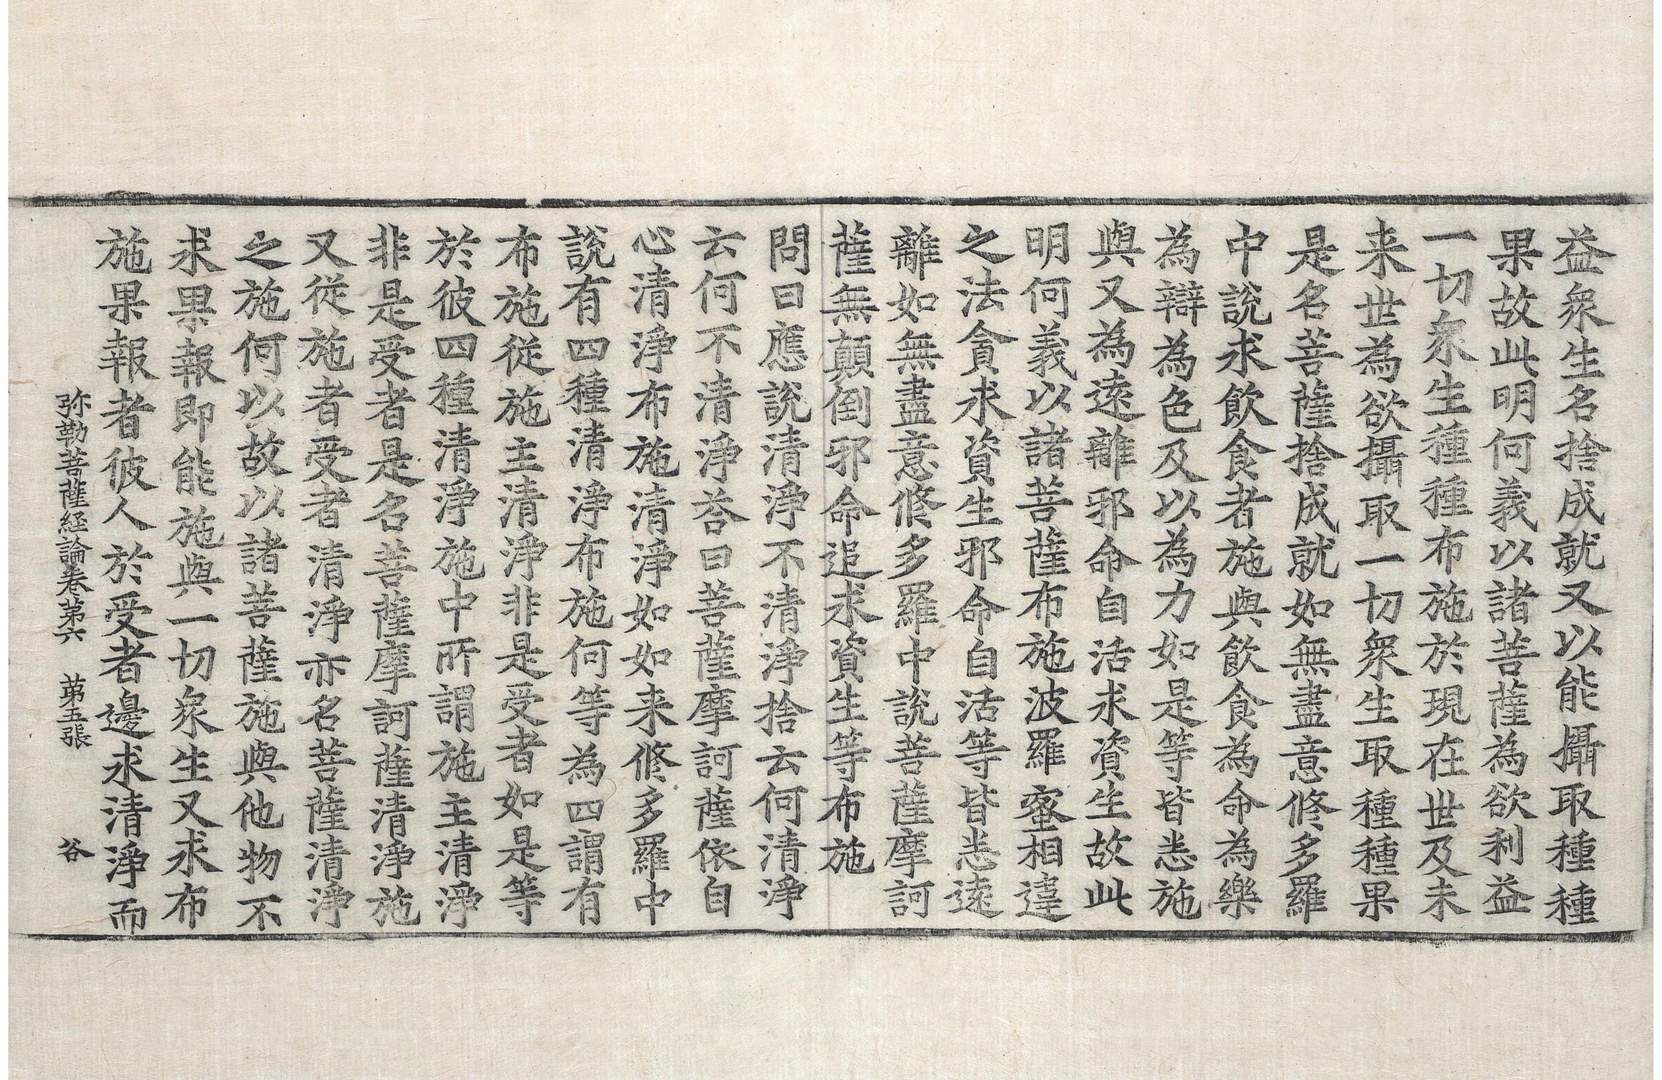 益衆生名捨成就又以能攝取種種
果故此明何義以諸菩薩為欲利益
一切衆生種種布施於現在世及未
来世為欲攝取一切衆生取種種果
是名菩薩捨成就如無盡意修多羅
中說求飲食者施與飲食為命為樂
為辯為色及以為力如是等皆悉施
與又為遠離邪命自活求資生故此
明何義以諸菩薩布施波羅蜜相違
之法貪求資生邪命自活等皆悉遠
離如無盡意修多羅中說菩薩摩訶
薩無顛倒邪命追求資生等布施
問曰應說清淨不清淨捨云何清淨
云何不清淨荅曰菩薩摩訶薩依自
心清淨布施清淨如如来修多羅中
說有四種清淨布施何等為四謂有
布施從施主清淨非是受者如是等
於彼四種清淨施中所謂施主清淨
非是受者是名菩薩摩訶薩清淨施
又從施者受者清淨亦名菩薩清淨
之施何以故以諸菩薩施與他物不
求果報即能施與一切衆生又求布
施果報者彼人於受者邊求清淨而
弥勒菩薩経論卷第六 苐五張 谷